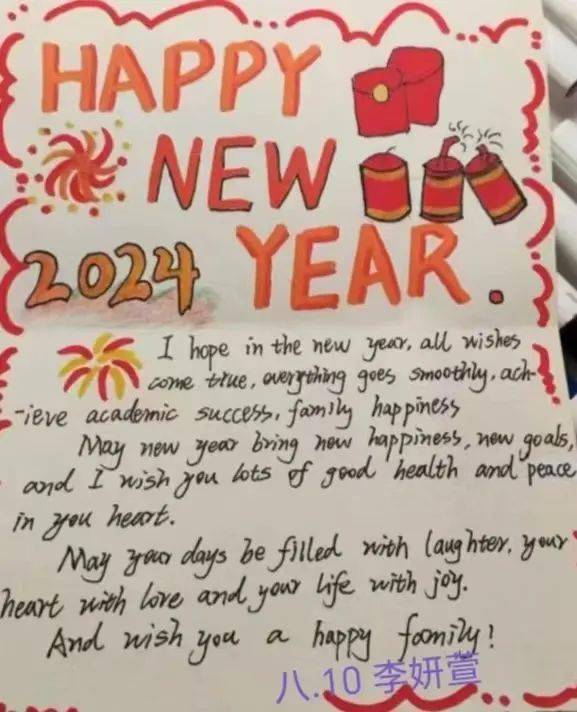 HAPPY
NEW
2024 YEAR.
I hope in the new year, all wishes
come true, everything goes smoothly, ach-
-ieve academic success, family happiness
May new year bring new happiness, new goals,
and I wish you lots of good health and peace
in you heart.
May your days be filled with laughter, your
heart with love and your life with joy.
And wish you a happy family!
八.10 李妍萱